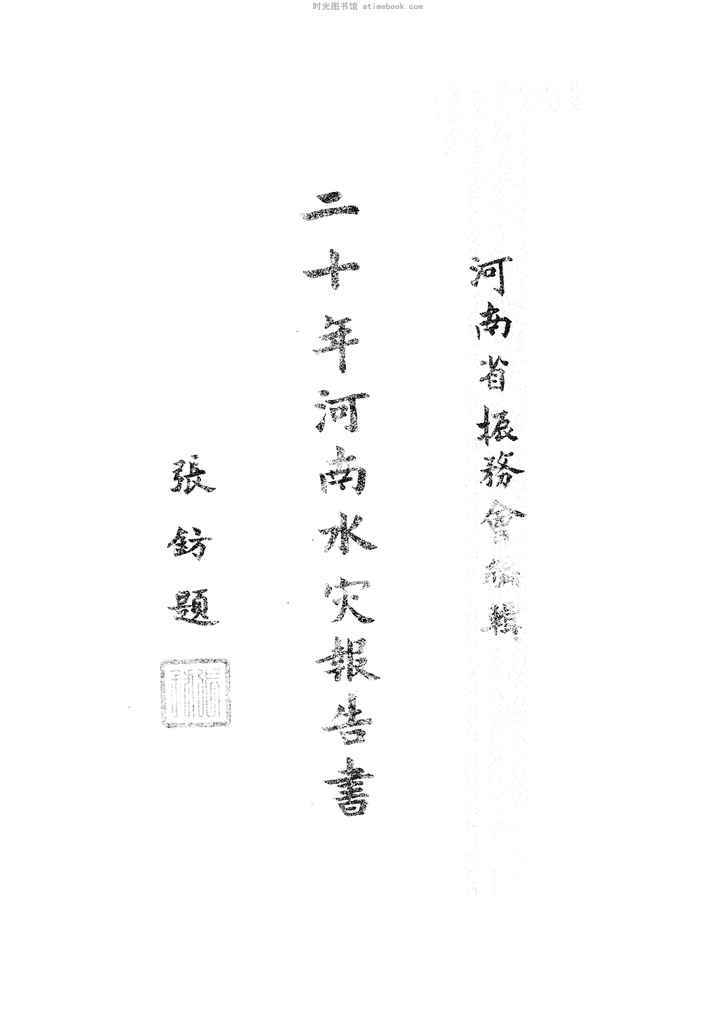 时光图书馆 atimebook.com
河南省振務會編輯
二十年河南水灾報告書
張鈁題